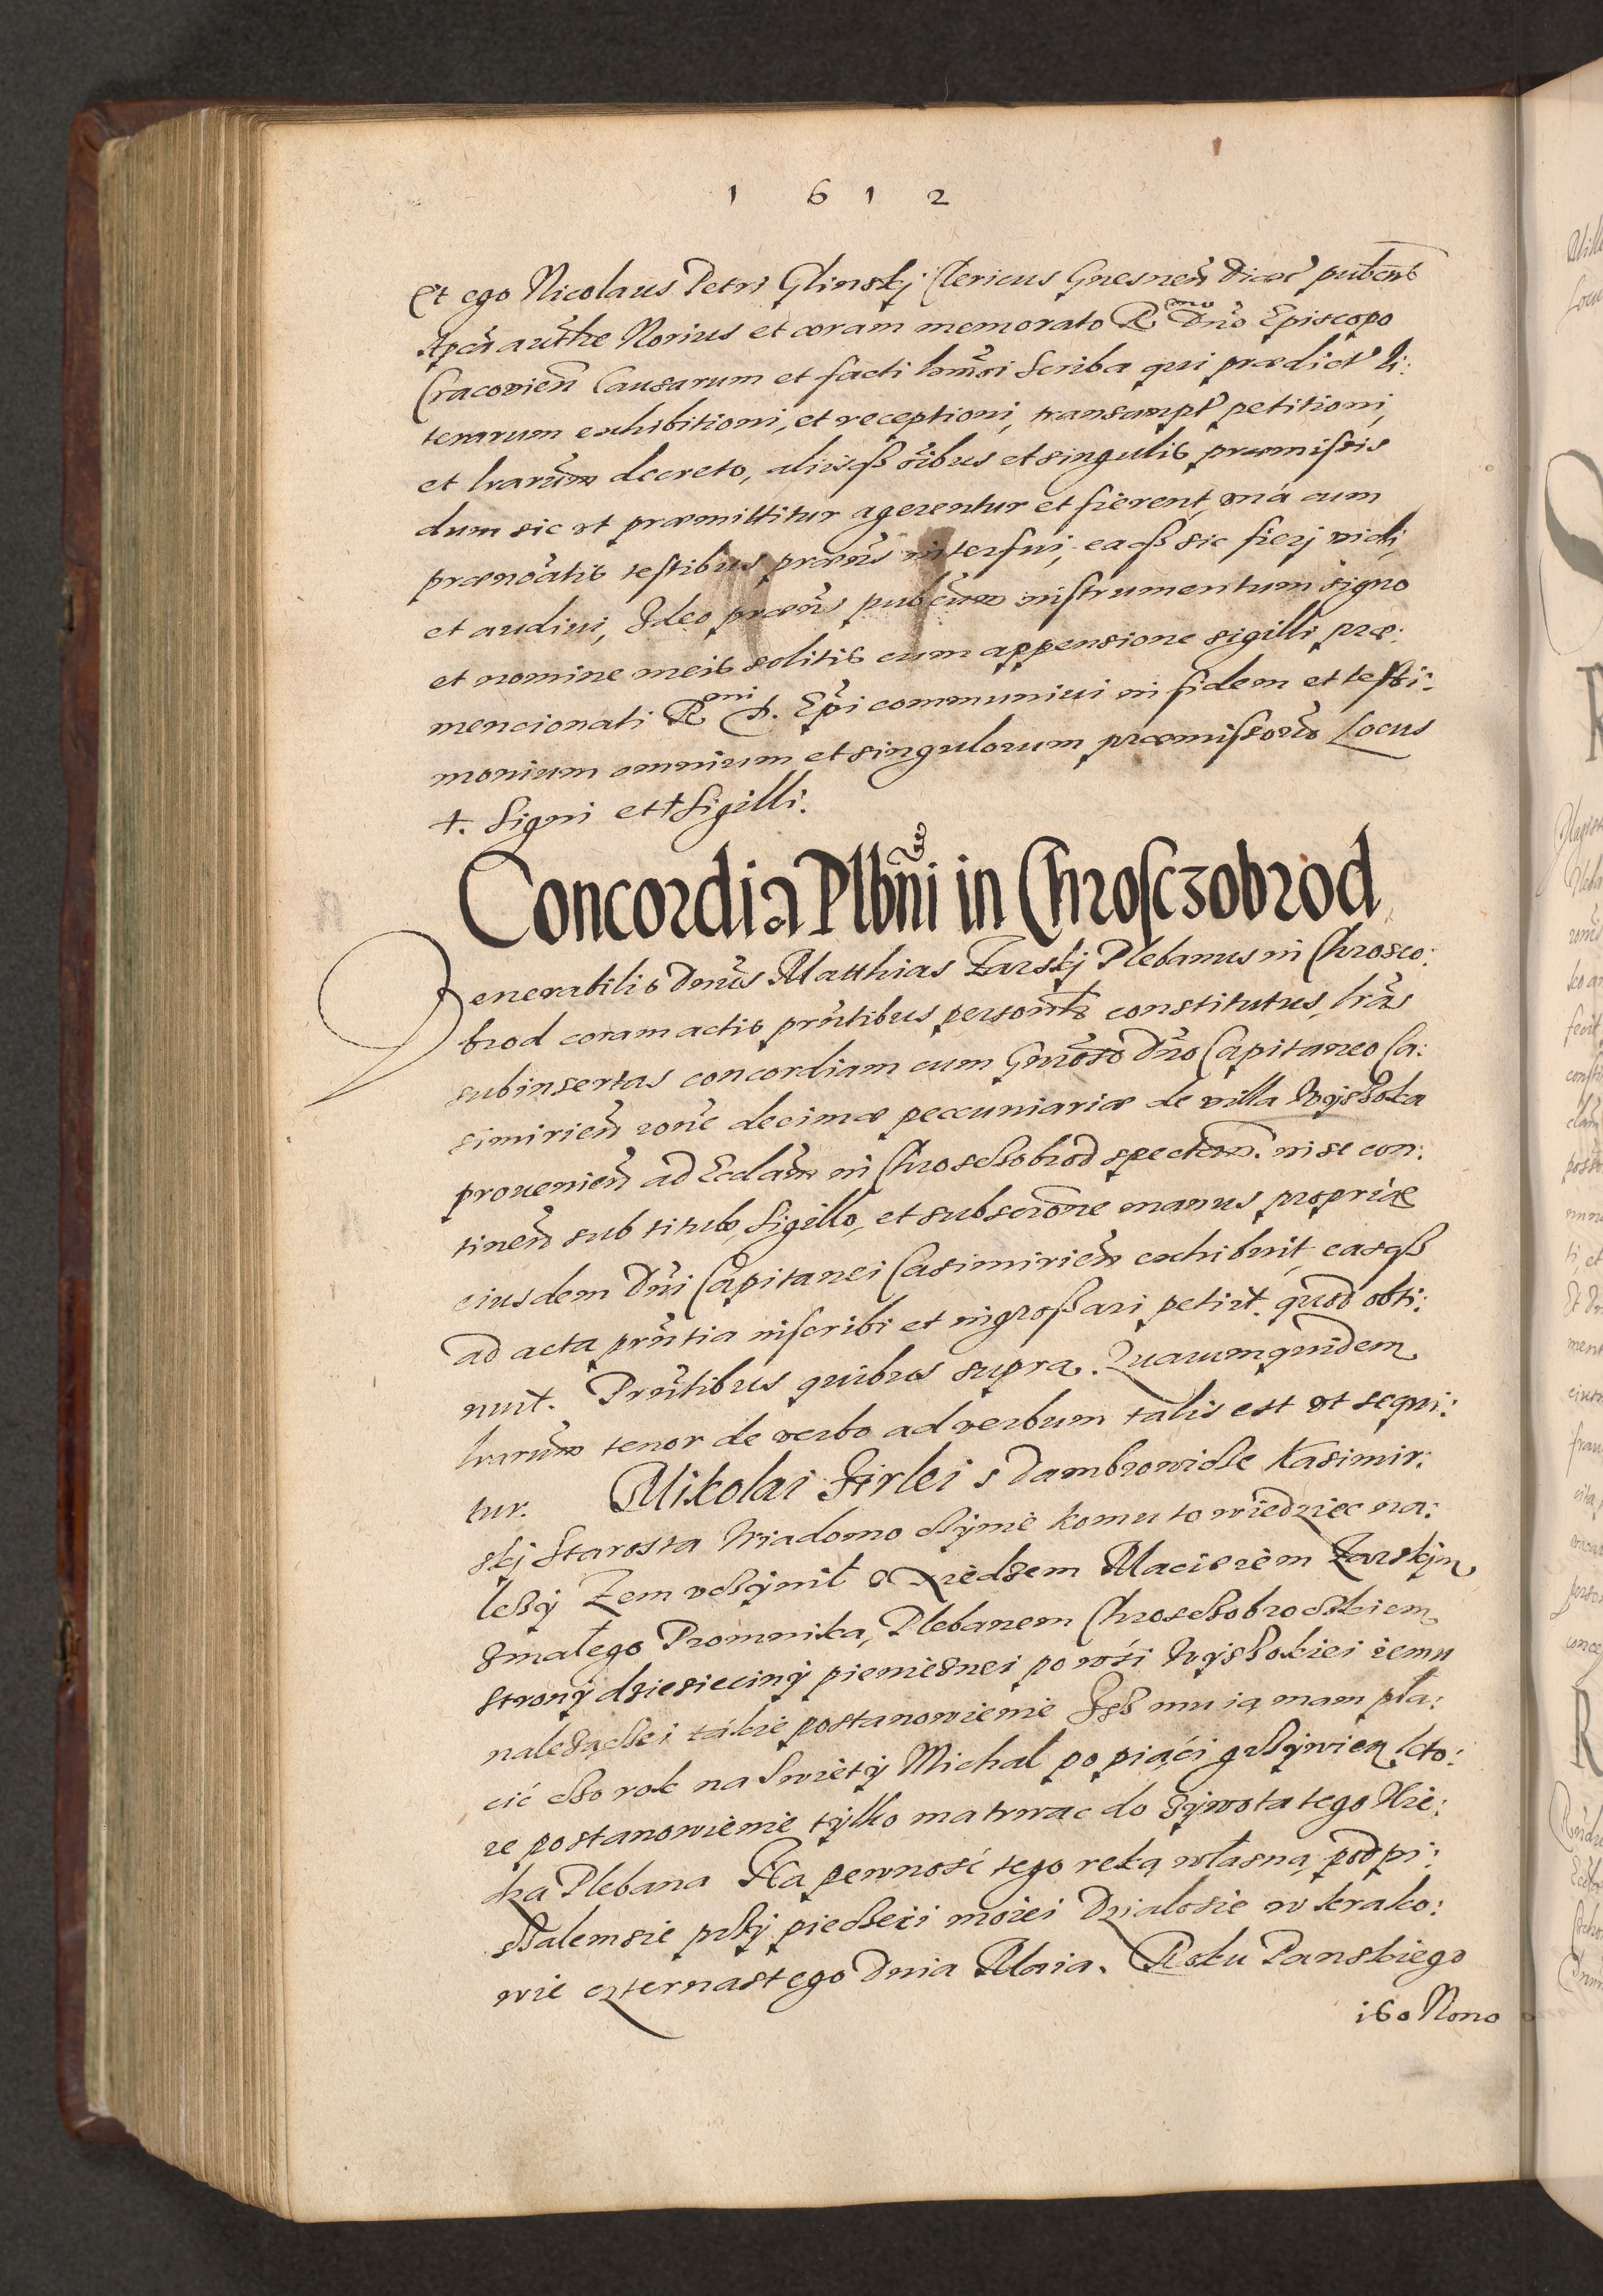 1 6 1 2
Et ego Nicolaus Petri Glinskj Clericus Gnesneñ Dioec̃ publcus
Aplca aucthe Norius et coram memorato Rmo Dño Episcopo
Cracovieñ Causarum et facti hmõi Scriba qui prædict li:
terarum exhibitioni, et receptioni, transsumpt petitioni,
et lrarum decreto, aliisqß oibus et singulis præmissis
dum sic vt præmittitur agerentur et fierent vná cum
prænoatis testibus præns interfui, eaqß sic fierj vidi,
et audiui, Ideo præns pubcum instrumentum signo
et nomine meis solitis cum appensione sigilli præ:
mencionati Rmi D. Epi communiui in fidem et testi:
monium omnium et singulorum præmissorũ Locus
+. Signi et + Sigilli.
Concordia Plbñi in Chrosczobrod
Venerabilis Dnus Matthias Zarskj Plebanus in Chrosco:
brod coram actis prntibus personlr constitutus, lras
subinsertas concordiam cum Gnroso Dño Capitaneo Ca:
simirieñ rone decimæ pecuniariæ de villa Wyssoka
prouenieñ ad Ecclam in Chroschobrod specteñ. in se con:
tineñ sub titulo, Sigillo, et subscrone manus propriæ
eiusdem Dñi Capitanei Casimirieñ exhibuit, easqß
ad acta prntia inscribi et ingroßari petiit. quod obti:
nuit. Prntibus quibus supra. Quarumquidem
lrarum tenor de verbo ad verbum talis est vt sequi:
tur. Mikolai Firlei s Dambrowicze Kasimir:
skj Starosta Wiadomo czynie komu to wiedziec na:
lezy Zem vczynił s Xiedzem Macieiem Zarskim
Zmałego Promnika, Plebanem Chroschobrodskiem
Strony dziesieciny pienieznei po wsi Wyssokiei iemu
nalezączei takie postanowienie Isz mu ią mam pła:
cić czo rok na Swiety Michal po piąći grzywien kto:
re postanowienie tylko ma trwac do zywota tego Xie:
dza Plebana Na pewnosć tego ręką własną podpi:
szalemsie przy pieczeci moiei Działosie w krako:
wie czternastego Dnia Maia. Roku Panskiego
160 Nono